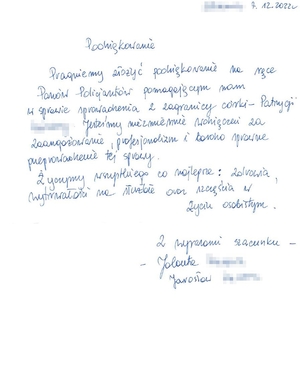 7.12.2022r
Podziękowanie
Pragniemy złożyć podziękowanie na ręce
Panów Policjantów pomagającym nam
w sprawie sprowadzenia z zagranicy córki - Patrycji
Jesteśmy niezmiernie wdzięczni za
zaangażowanie, profesjonalizm i bardzo sprawne
przeprowadzenie tej sprawy.
Życzymy wszystkiego co najlepsze: zdrowia,
wytrwałości na służbie oraz szczęścia w
życiu osobistym.
Z wyrazami szacunku -
- Jolanta
Jarosław